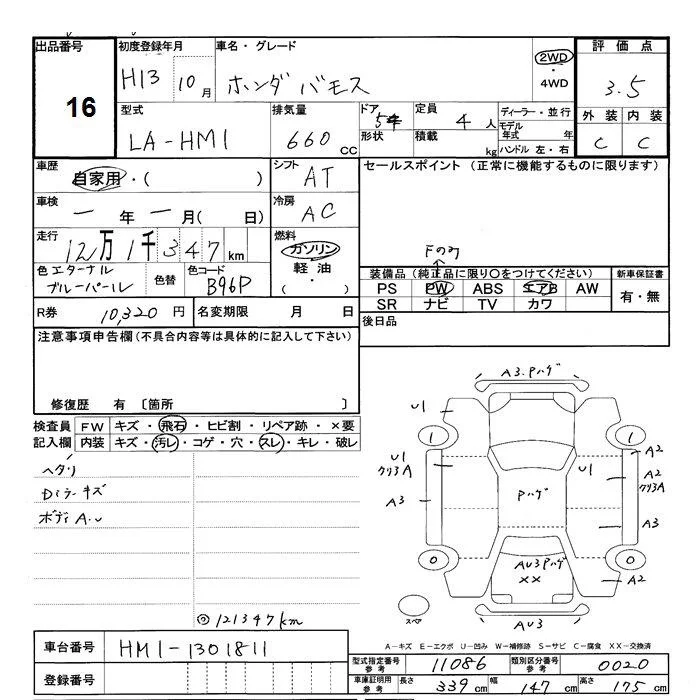 出品番号 初度登録年月 車名・グレード 2WD 評価点
16 H13 10月 ホンダ バモス ・ 3.5
4WD
型式 排気量 ドア 定員 ディーラー・並行 外装 内装
LA-HM1 660 cc 5 4人 モデル年式 年 C C
形状 積載 kg ハンドル 左・右
車歴 自家用・( ) シフト AT セールスポイント (正常に機能するものに限ります)
車検 ー年ー月( 日) 冷房 AC
走行 12万1千347 km 燃料 ガソリン Fのみ
軽油 ・ ( )
色エターナルブルーパール 色替 色コード B96P 装備品 (純正品に限り○をつけてください) 新車保証書
PS PW ABS エアB AW 有・無
SR ナビ TV カワ
R券 10,320円 名変期限 月 日 後日品
注意事項申告欄(不具合内容等は具体的に記入して下さい)
修復歴 有 〔箇所 〕
検査員 FW キズ・飛石・ヒビ割・リペア跡・×要
記入欄 内装 キズ・汚レ・コゲ・穴・スレ・キレ・破レ
ヘタリ
Dミラーキズ
ボディA.U
A3.Pハゲ
U1
1 1
A2
U1 クリヌA U1 A2 クリヌA
Pハゲ
A3 A3
0 0
AU3Pハゲ A2
XX
スペア AU3
121347km
A-キズ E-エクボ U-凹み W-補修跡 S-サビ C-腐食 XX-交換済
車台番号 HM1-1301811
型式指定番号 参考 11086 類別区分番号 参考 0020
登録番号
車庫証明用 参考 長さ 339cm 幅 147cm 高さ 175cm